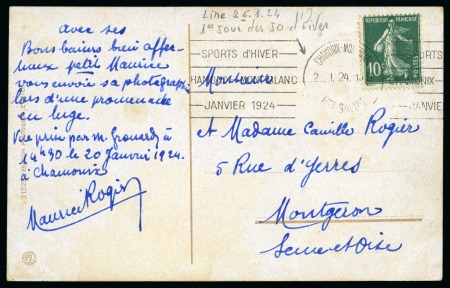 avec ses
Bons baisers bien affec-
tueux petit Maurice
vous envoie sa photographie
lors d'une promenade
en luge.
Vue prise par M.
14h30 le 20 Janvier 1924.
à Chamonix
Maurice Rogier
Lire 26.1.24
1er Jour des JO d'hiver
SPORTS d'HIVER
CHAMONIX-MONT-BLANC
JANVIER 1924
CHAMONIX-MO
1.24
REPUBLIQUE FRANÇAISE
10c
POSTES
Monsieur
et Madame Camille Rogier
5 Rue d'Yerres
Montgeron
Seine et Oise